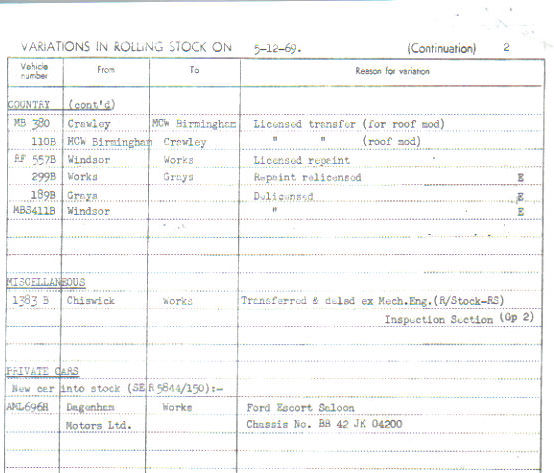 VARIATIONS IN ROLLING STOCK ON 5-12-69. (Continuation) 2
Vehicle number From To Reason for variation
COUNTRY (cont'd)
MB 380 Crawley MCW Birmingham Licensed transfer (for roof mod)
110B MCW Birmingham Crawley " " (roof mod)
RF 557B Windsor Works Licensed repaint
299B Works Grays Repaint relicensed E
189B Grays Delicensed E
MB3411B Windsor " E
MISCELLANEOUS
1383 B Chiswick Works Transferred & delsd ex Mech.Eng.(R/Stock-RS)
Inspection Section (Gp 2)
PRIVATE CARS
New car into stock (SE R 5844/150):-
AML696H Dagenham Works Ford Escort Saloon
Motors Ltd. Chassis No. BB 42 JK 04200